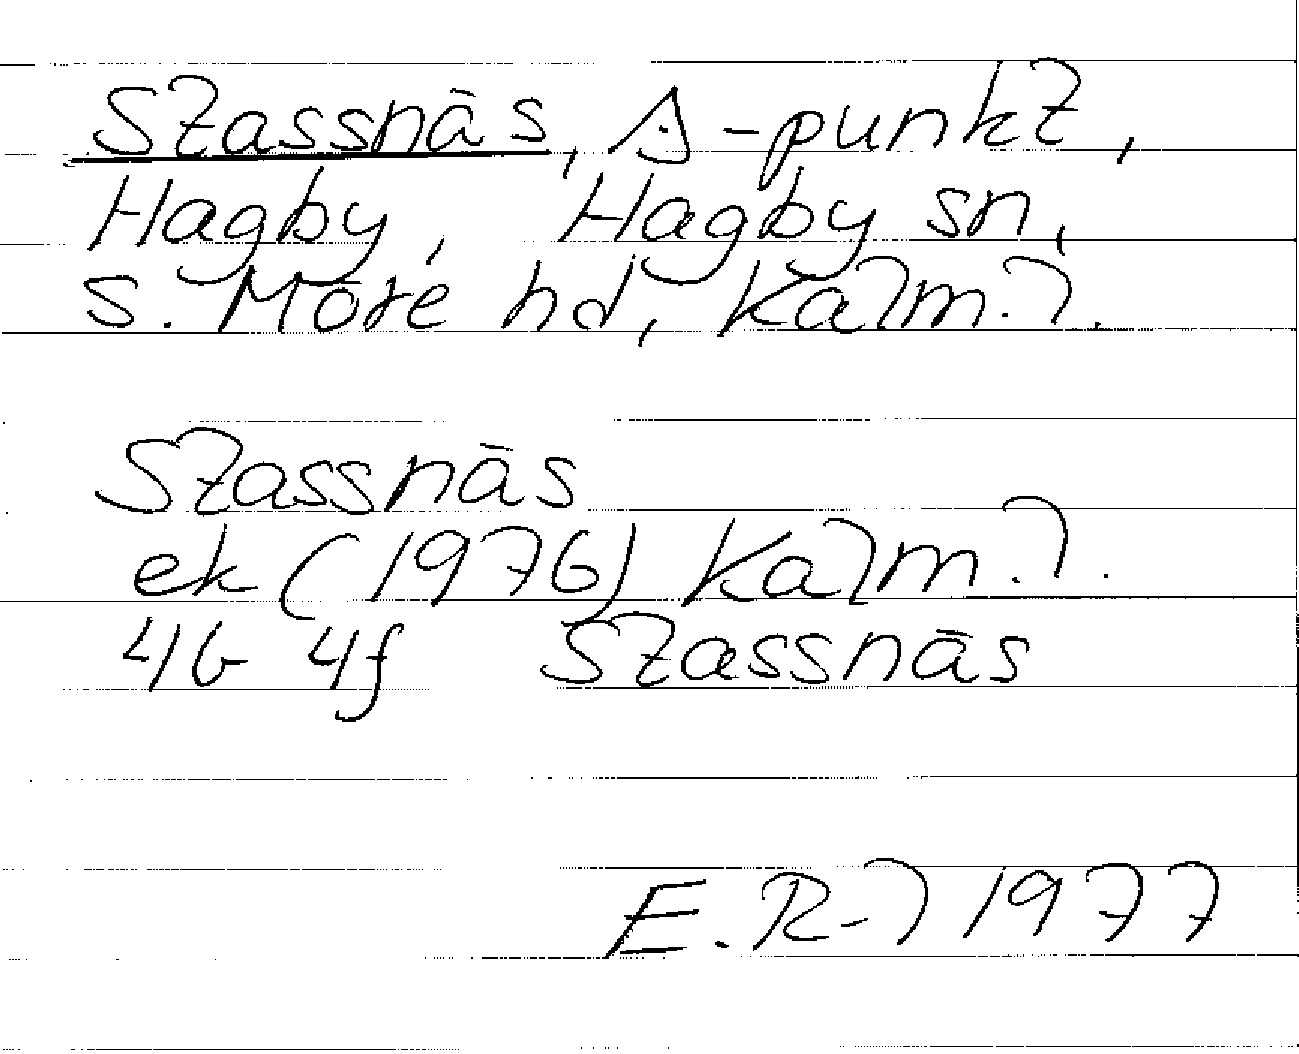 Stassnäs, Δ-punkt,
Hagby, Hagby sn,
S. Möre hd, Kalm. l.
Stassnäs
ek (1976) Kalm. l.
4G 4f Stassnäs
E. R-l 1977